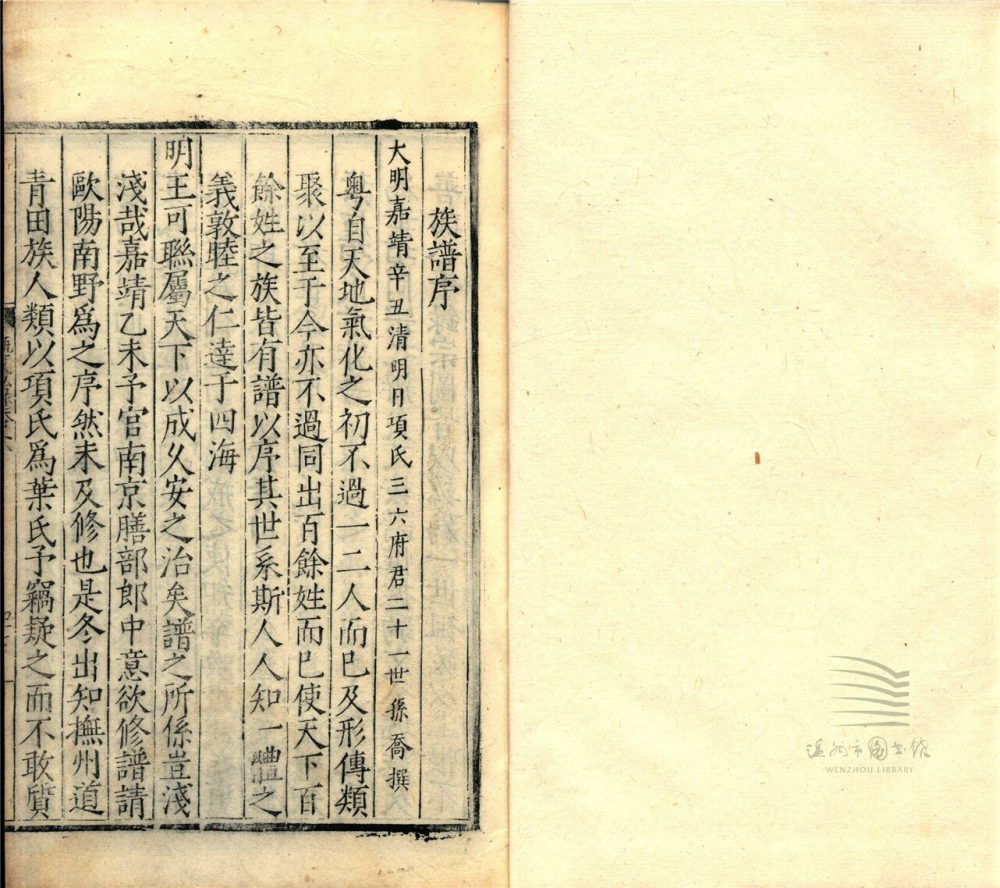 族譜序
大明嘉靖辛丑清明日項氏三六府君二十一世孫喬撰
粵自天地氣化之初不過一二人而已及形傳類
聚以至于今亦不過同出百餘姓而已使天下百
餘姓之族皆有譜以序其世系斯人人知一體之
義敦睦之仁達于四海
明王可聯屬天下以成久安之治矣譜之所係豈淺
淺哉嘉靖乙未予官南京膳部郎中意欲修譜請
歐陽南野爲之序然未及修也是冬出知撫州道
青田族人類以項氏爲葉氏予竊疑之而不敢質
温州市图书馆
WENZHOU LIBRARY